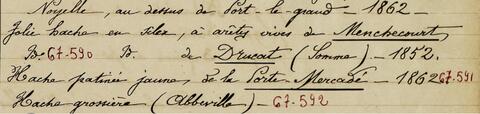 Noyelle, au dessus de Port-le-grand - 1862
Jolie hache en silex, à arêtes vives de Menchecourt
Do 67-590 D. de Drucat (Somme) - 1852.
Hache patinée jaune de la Porte-Mercadé - 1862 67-591
Hache grossière (Abbeville) - 67-592